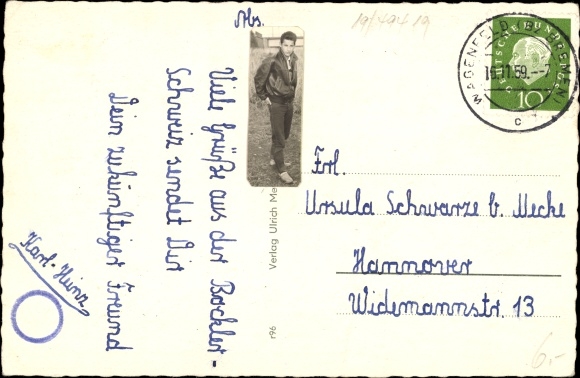 Abs.
Viele Grüße aus der Bockler-
Schweiz sendet Dir
Dein zukünftiger Freund
Karl-Heinz
Verlag Ulrich Me
r96
Frl.
Ursula Schwarze b. Mecke
Hannover
Widemannstr. 13
WAGENFELD
16.11.59.--7
c
DEUTSCHE BUNDESPOST
10
6,-